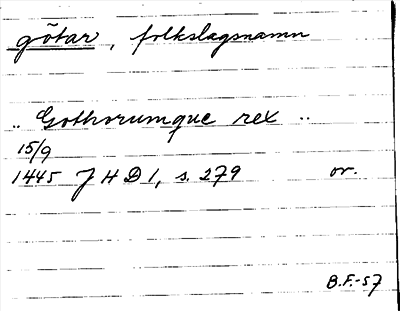 götar, folkslagsnamn
.. Gothorumque rex ..
15/9
1445 JHD 1, s. 279 or.
B.F.-57